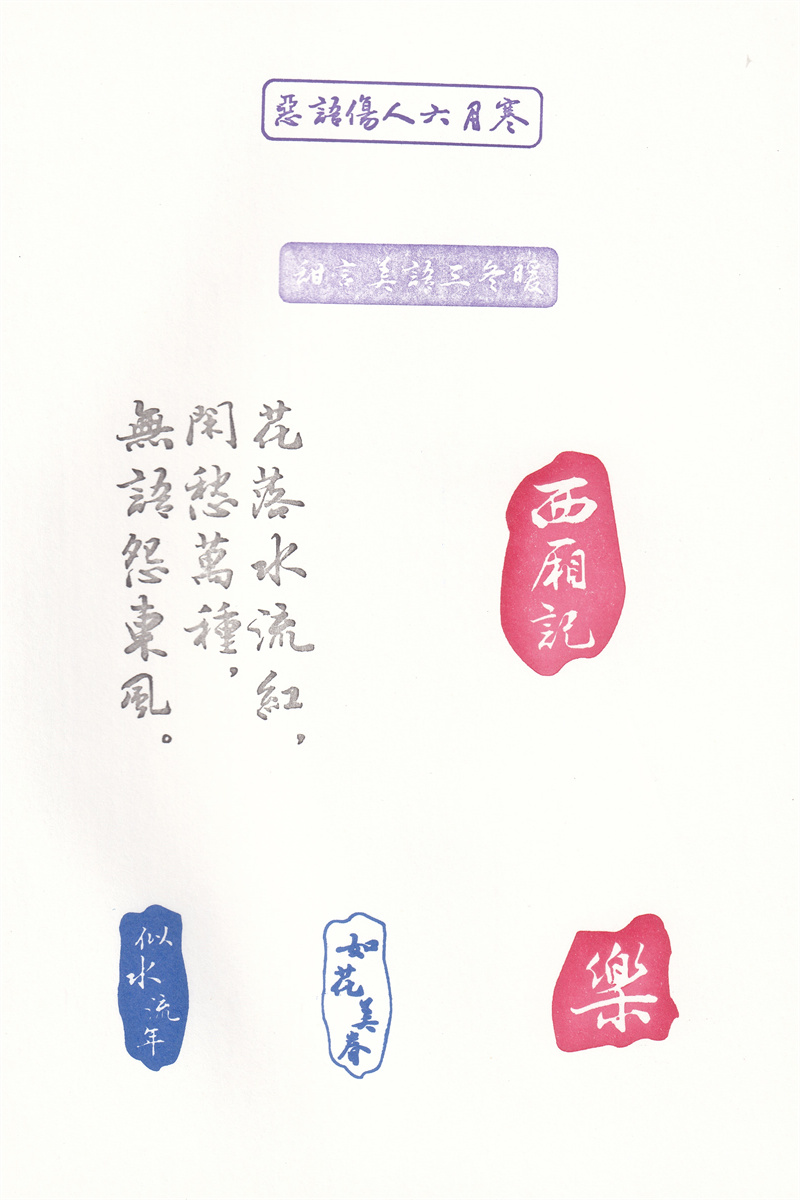 惡語傷人六月寒
甜言美語三冬暖
花落水流紅，
閑愁萬種，
無語怨東風。
西厢記
似水流年
如花美眷
樂